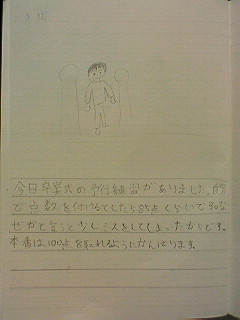 今日卒業式の予行練習がありました。的
で点数を付けるとしたら85点くらいで
ぜかと言うと少しミスをしてしまったからです。
本番は100点を取れるようにがんばります。